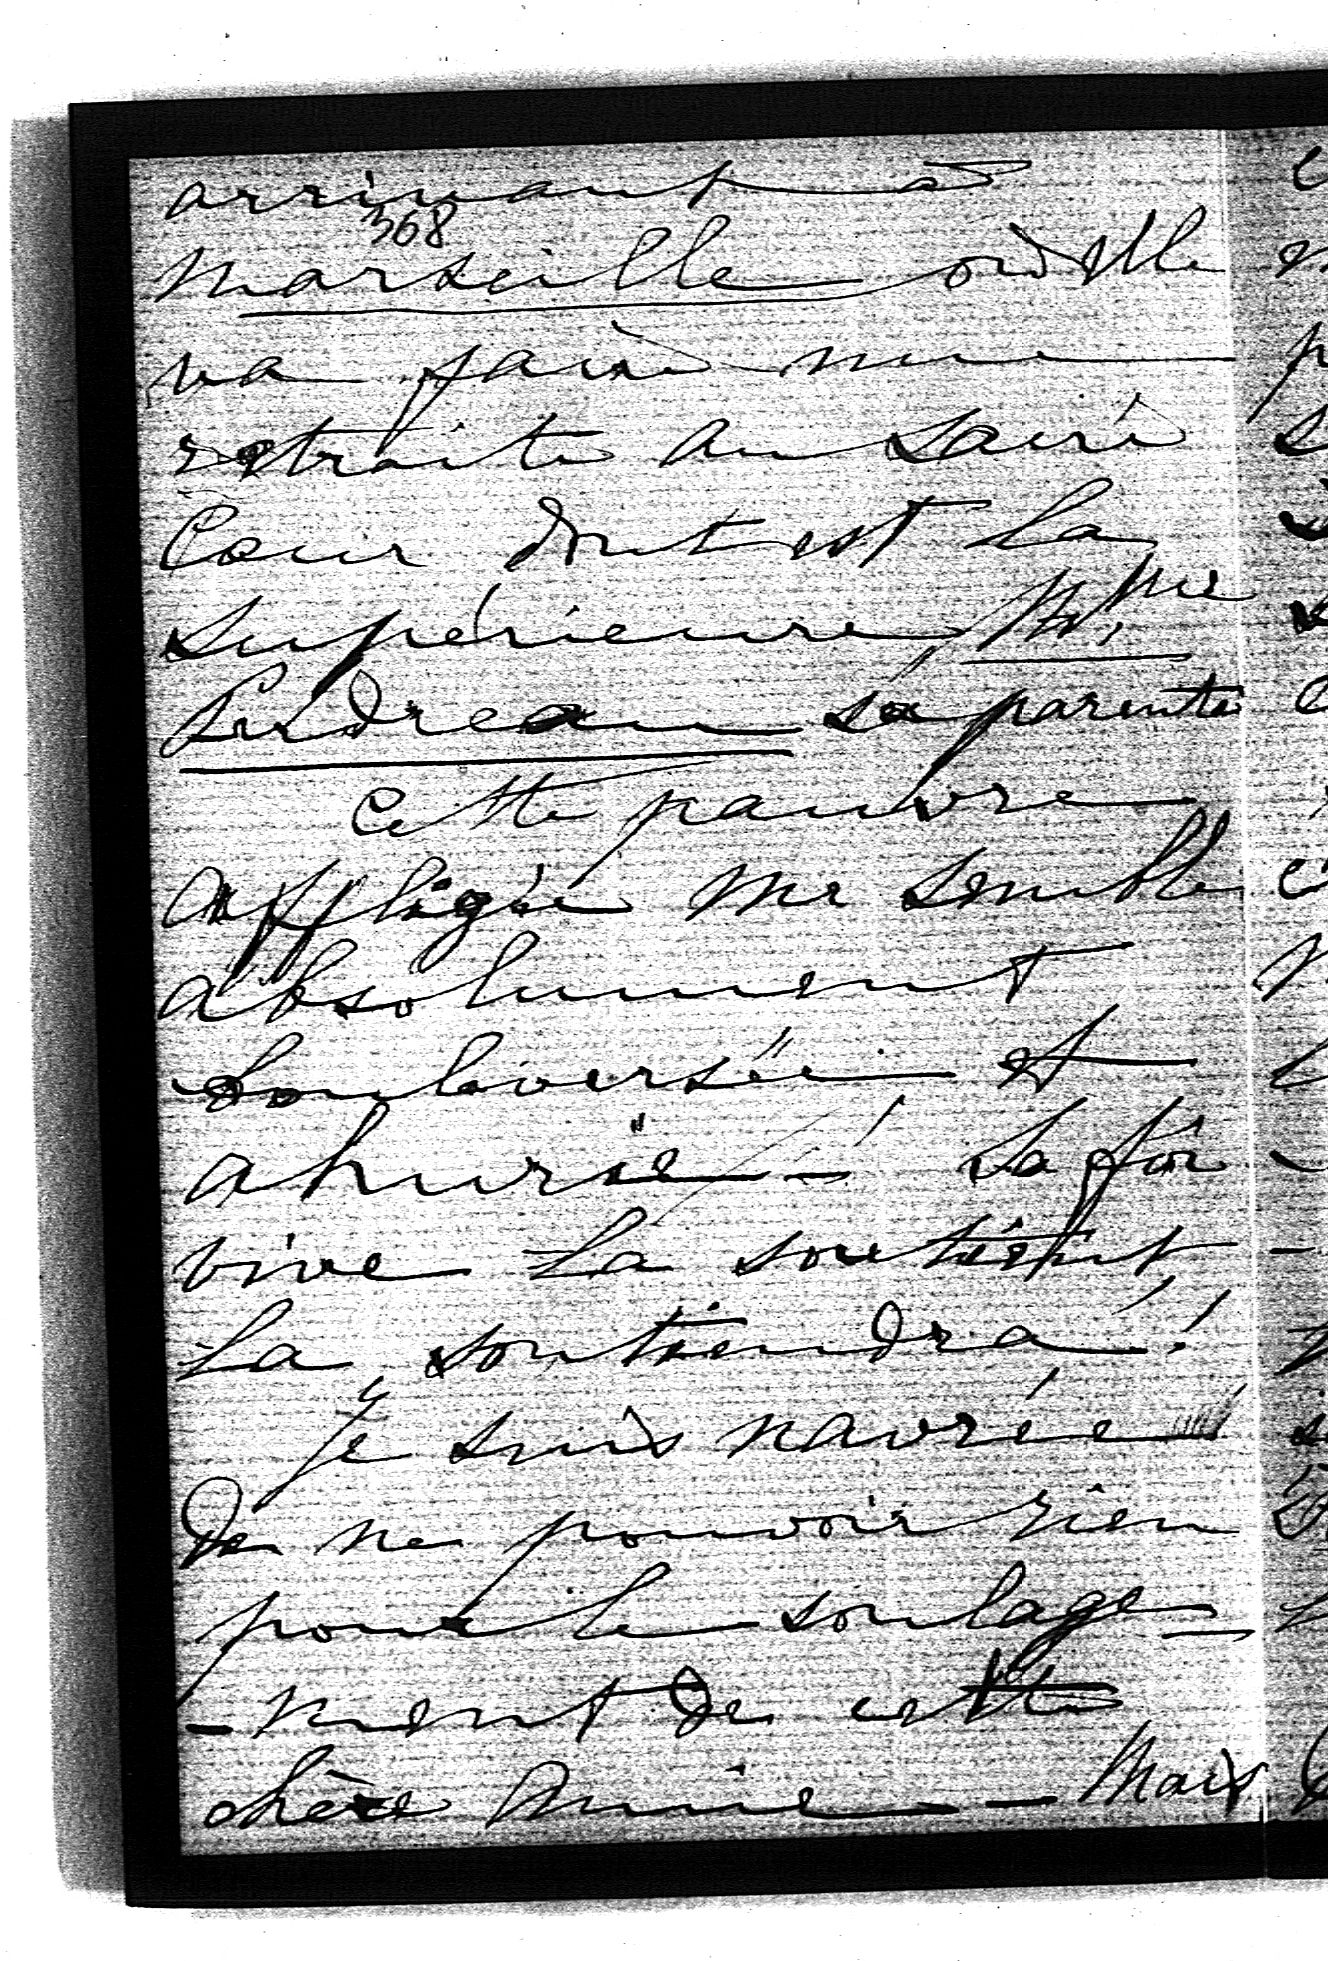 arrivant à
368
Marseille où elle
va faire une
retraite au Sacré
Cœur dont est la
supérieure, Mme
sa parente
Cette pauvre
affligée me semble
absolument
bouleversée et
ahurie ! Sa foi
vive la soutient,
la soutiendra !
Je suis navrée
de ne pouvoir rien
pour le soulage-
-ment de cette
chère Amie — Mais